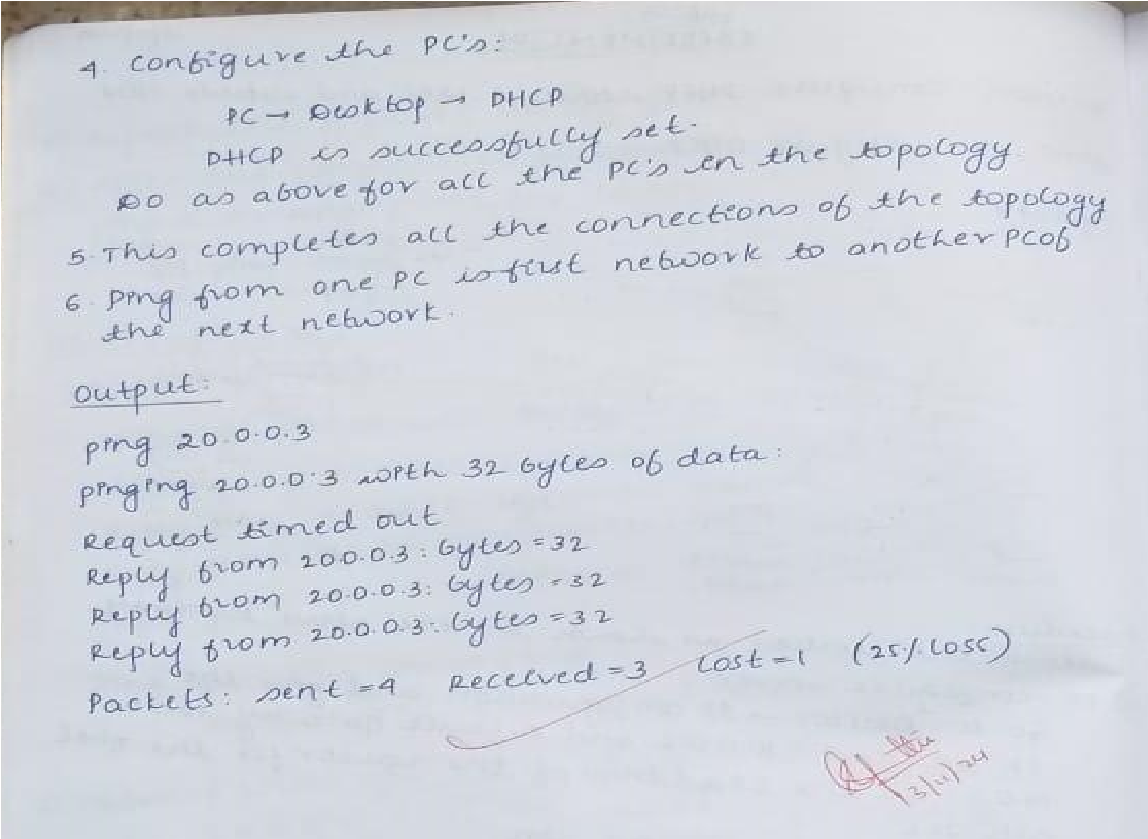 4. Configure the PC's:
PC → Desktop → DHCP
DHCP is successfully set.
Do as above for all the PC's in the topology
5. This completes all the connections of the topology
6. Ping from one PC is first network to another PC of
the next network.
Output:
ping 20.0.0.3
pinging 20.0.0.3 with 32 bytes of data:
Request timed out
Reply from 20.0.0.3: bytes=32
Reply from 20.0.0.3: bytes=32
Reply from 20.0.0.3: bytes=32
Packets: sent=4 Received=3 Lost=1 (25% loss)